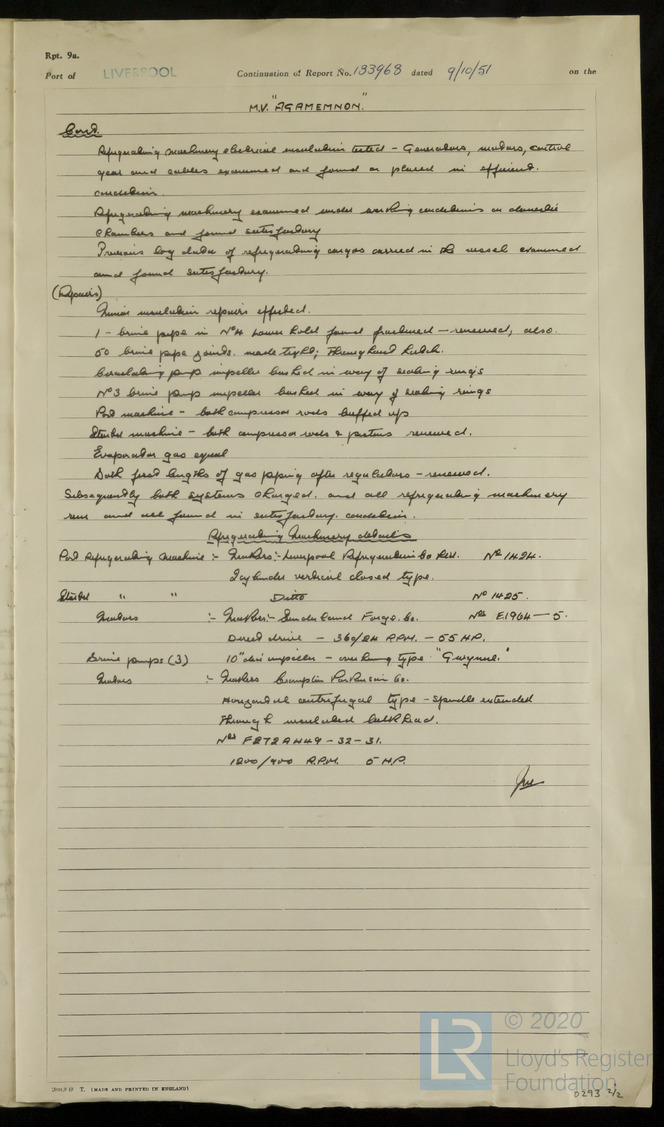 Rpt. 9a.
Port of LIVERPOOL Continuation of Report No. 133968 dated 9/10/51 on the
M.V. "AGAMEMNON."
Contd.
Refrigerating machinery electrical insulation tested - Generators, motors, control
gear and cables examined and found or placed in efficient
condition.
Refrigerating machinery examined under working conditions on domestic
chambers and found satisfactory
Previous log data of refrigerating cargos carried in the vessel examined
and found satisfactory.
(Repairs)
Minor insulation repairs effected.
1 - brine pipe in No4 Lower Hold found fractured - renewed, also
50 brine pipe joints made tight; Throughout Hatch.
Circulating pump impeller bushed in way of sealing rings
No3 brine pump impeller bushed in way of sealing rings
Port machine - both compressor rods buffed up
Starbd machine - both compressor rods & pistons renewed.
Evaporator gas
Both first lengths of gas piping after regulators - renewed.
Subsequently both systems charged, and all refrigerating machinery
run and all found in satisfactory condition.
Refrigerating Machinery details
Port Refrigerating Machine :- Makers:- Liverpool Refrigeration Co Ltd. No 1424.
2 cylinder vertical closed type.
Starbd " " Ditto No 1425.
Motors :- Makers:- Sunderland Forge. Co. Nos E1964 - 5.
Direct drive - 360/ R.P.M. - 55 H.P.
Brine pumps (3) 10" dia impeller - overhung type "Gwynne."
Motors :- Makers Crompton Parkinson Co.
Horizontal centrifugal type - spindle extended
through insulated bulkhead.
Nos F272AH49 - 32 - 31.
1200/900 R.P.M. 5 H.P.
© 2020
LR
Lloyd's Register
Foundation
T. (MADE AND PRINTED IN ENGLAND)
0293 2/2